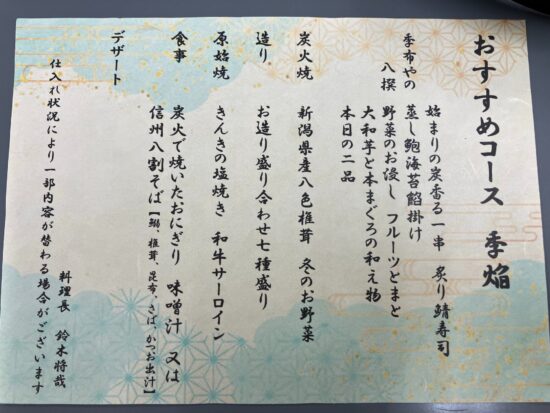 おすすめコース　季焔
季布やの八撰
始まりの炭香る一串　炙り鯖寿司
蒸し鮑海苔餡掛け
野菜のお浸し　フルーツとまと
大和芋と本まぐろの和え物
本日の二品
炭火焼　新潟県産八色椎茸　冬のお野菜
造り　お造り盛り合わせ七種盛り
原始焼　きんきの塩焼き　和牛サーロイン
食事　炭火で焼いたおにぎり　味噌汁　又は
信州八割そば【鰯、椎茸、昆布、さば、かつお出汁】
デザート
仕入れ状況により一部内容が替わる場合がございます
料理長　鈴木将哉